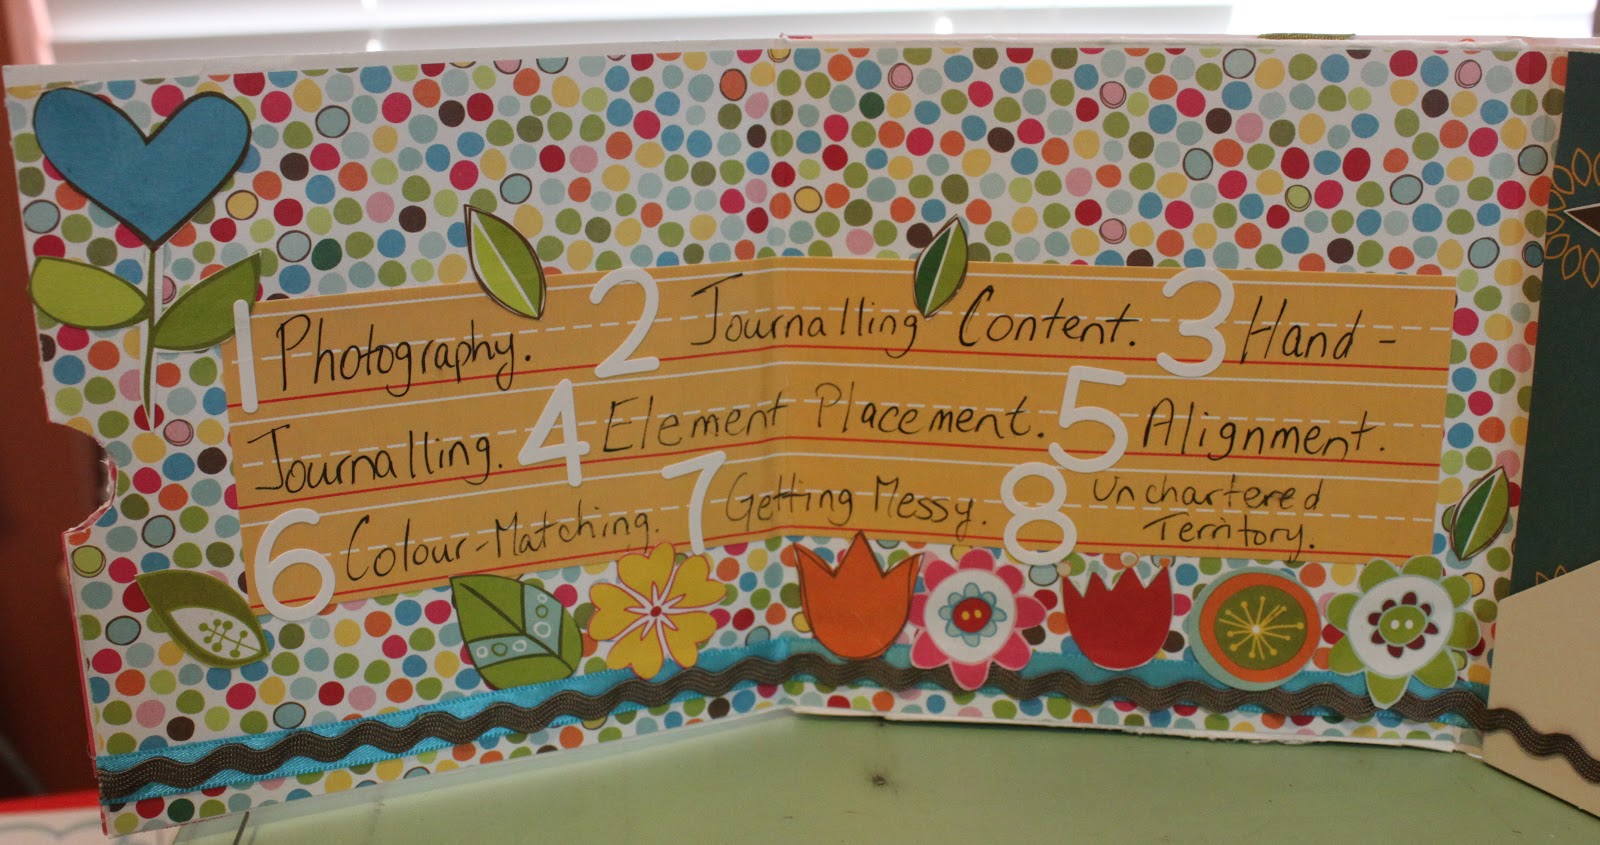 1 Photography. 2 Journalling Content. 3 Hand-
Journalling. 4 Element Placement. 5 Alignment.
6 Colour-Matching. 7 Getting Messy. 8 Unchartered
Territory.